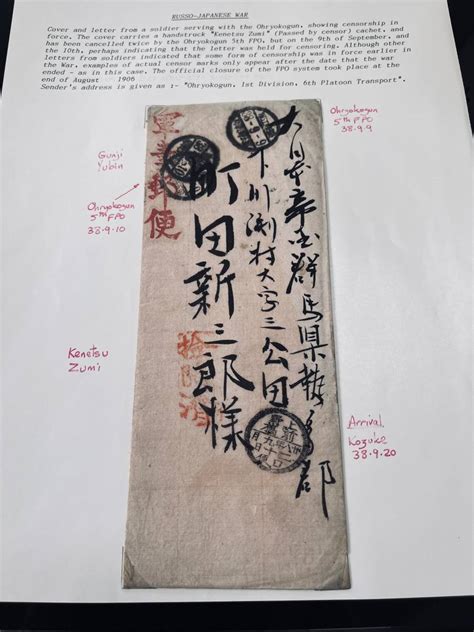 RUSSO-JAPANESE WAR
Cover and letter from a soldier serving with the Ohryokogun, showing censorship in
force. The cover carries a handstruck "Kenetsu Zumi" (Passed by censor) cachet, and
has been cancelled twice by the Ohryokogun 5th FPO, but on the 9th of September, and
the 10th, perhaps indicating that the letter was held for censoring. Although other
letters from soldiers indicated that some form of censorship was in force earlier in
the War, examples of actual censor marks only appear after the date that the war
ended - as in this case. The official closure of the FPO system took place at the
end of August 1906
Sender's address is given as :- "Ohryokogun, 1st Division, 6th Platoon Transport".
Ohryokogun
5th FPO
38.9.9
Gunji
Yubin
Ohryokogun
5th FPO
38.9.10
Kenetsu
Zumi
Arrival
Kozuke
38.9.20
大日本帝国群馬県
下川渕村大字三公田
町田新三郎様
軍事郵便
検閲済